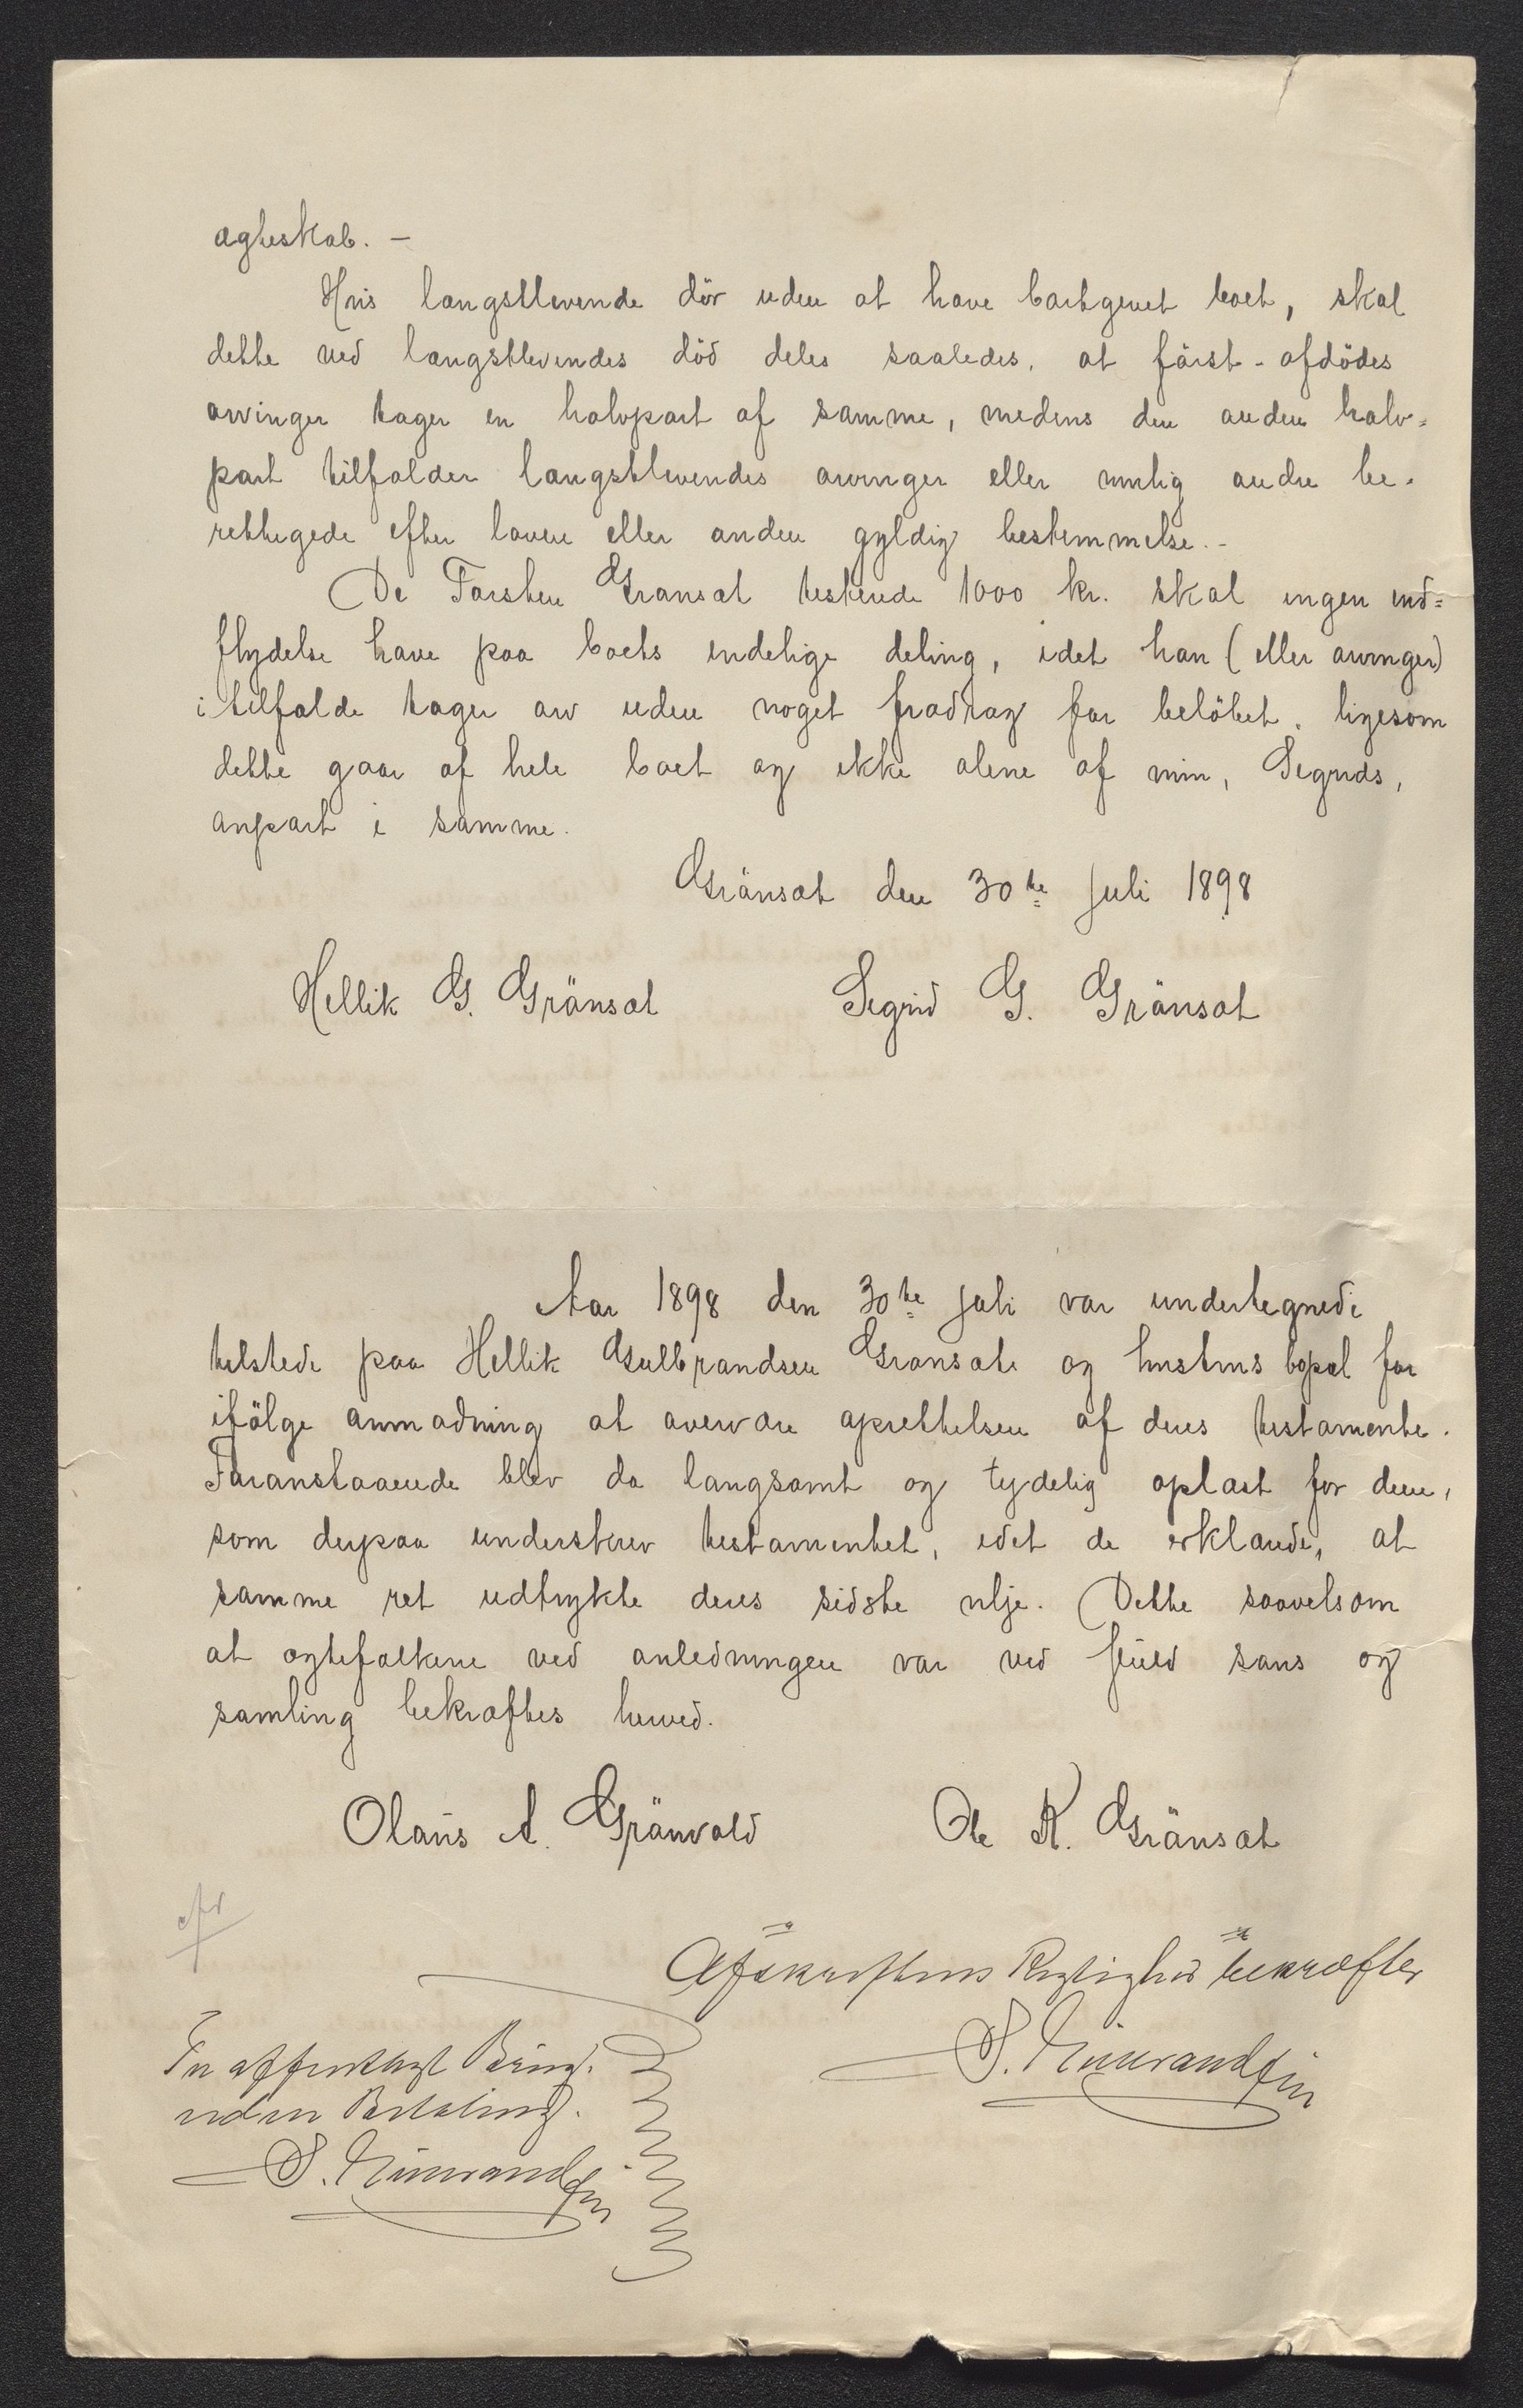 ægteskab. —
Hvis længstlevende dör uden at have bortgivet boet, skal
dette ved længstlevendes död deles saaledes, at först-afdödes
arvinger tager en halvpart af samme, medens den anden halv=
part tilfalder længstlevendes arvinger eller mulig andre be-
rettigede efter loven eller anden gyldig bestemmelse. -
De Torsten Grönsæt testerede 1000 kr. skal ingen ind=
flydelse have paa boets endelige deling, idet han (eller arvinger)
i tilfælde tager arv uden noget fradrag for belöbet, ligesom
dette gaar af hele boet og ikke alene af min, Sigrids,
anpart i samme.
Grönsæt den 30te Juli 1898
Hellik G. Grönsæt Sigrid G. Grönsæt
Aar 1898 den 30te Juli var undertegnede
tilstede paa Hellik Gulbrandsen Grönsæt og hustrus bopæl for
ifölge anmodning at overvære oprettelsen af deres testamente.
Foranstaaende blev da langsomt og tydelig oplæst for dem,
som derpaa underskrev testamentet, idet de erklærede, at
samme ret udtrykte deres sidste vilje. Dette saavelsom
at ægtefolkene ved anledningen var ved fuld sans og
samling bekræftes herved.
Olaus A. Grönvold Ole K. Grönsæt
Afskriftens Rigtighed bekræfter
In offentligt Brug.
uden Betaling.